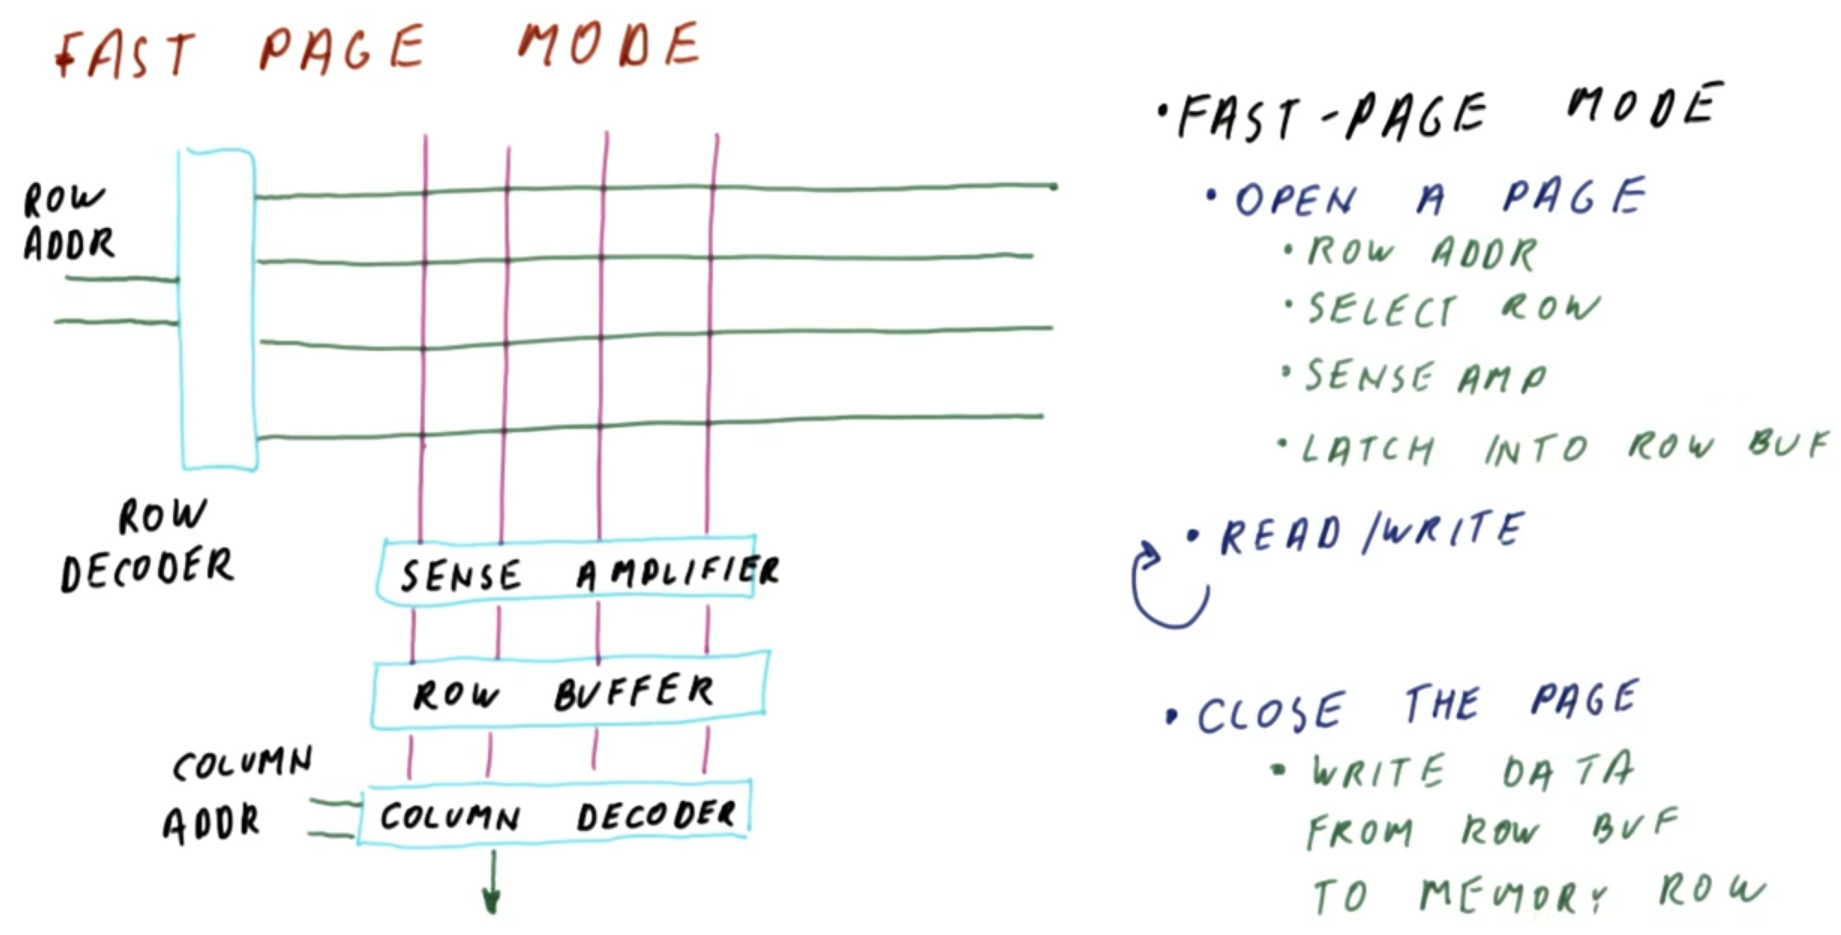 FAST PAGE MODE
ROW
ADDR
ROW
DECODER
SENSE AMPLIFIER
ROW BUFFER
COLUMN
ADDR
COLUMN DECODER
• FAST-PAGE MODE
• OPEN A PAGE
• ROW ADDR
• SELECT ROW
• SENSE AMP
• LATCH INTO ROW BUF
• READ/WRITE
• CLOSE THE PAGE
• WRITE DATA
FROM ROW BUF
TO MEMORY ROW